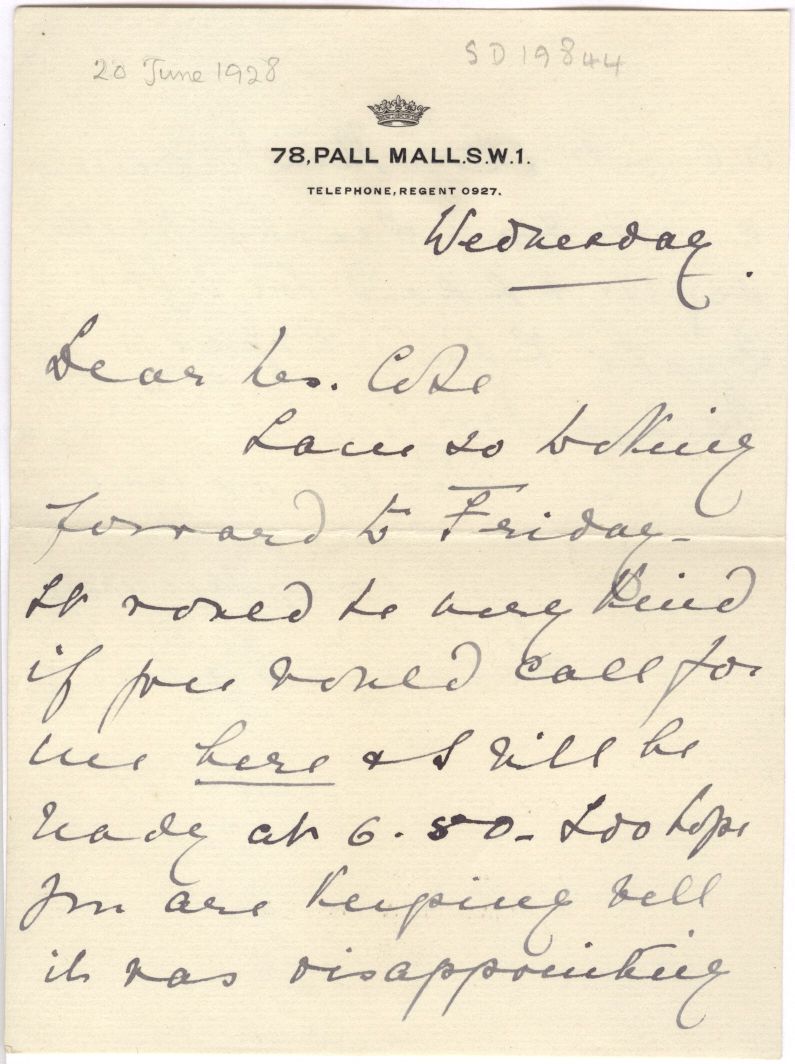 20 June 1928
SD 19844
78, PALL MALL. S.W.1.
TELEPHONE, REGENT 0927.
Wednesday.
Dear Mrs.
I am so looking
forward to Friday -
It would be very kind
if you would call for
me here & I will be
ready at 6.50 - I do hope
you are keeping well
it was disappointing